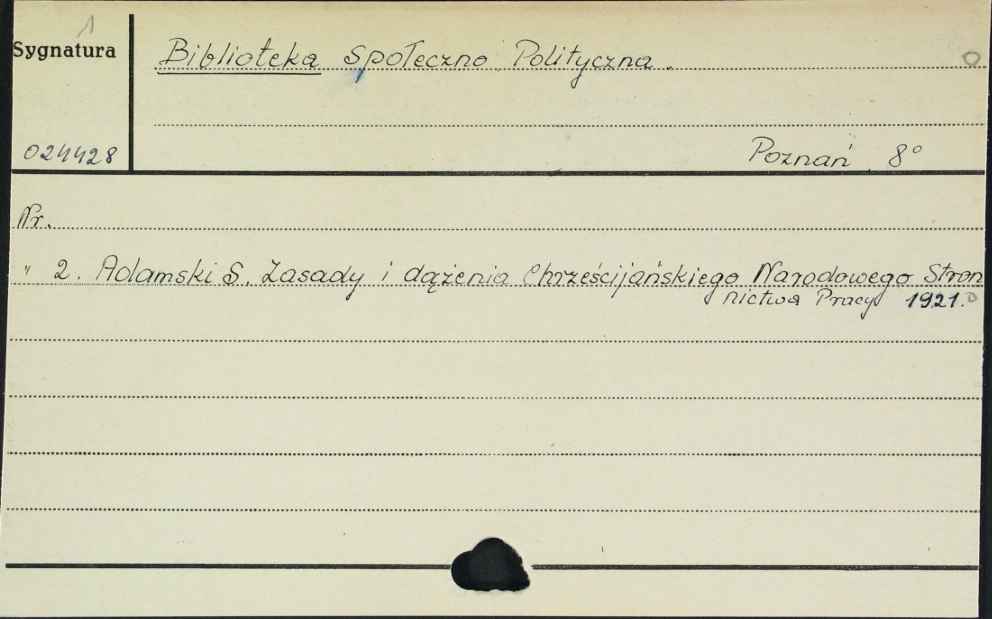 1
Sygnatura
Biblioteka Społeczno Polityczna.
024428
Poznań 8°
Nr.
" 2. Adamski S. Zasady i dążenia Chrześcijańskiego Narodowego Stron
nictwa Pracy 1921.